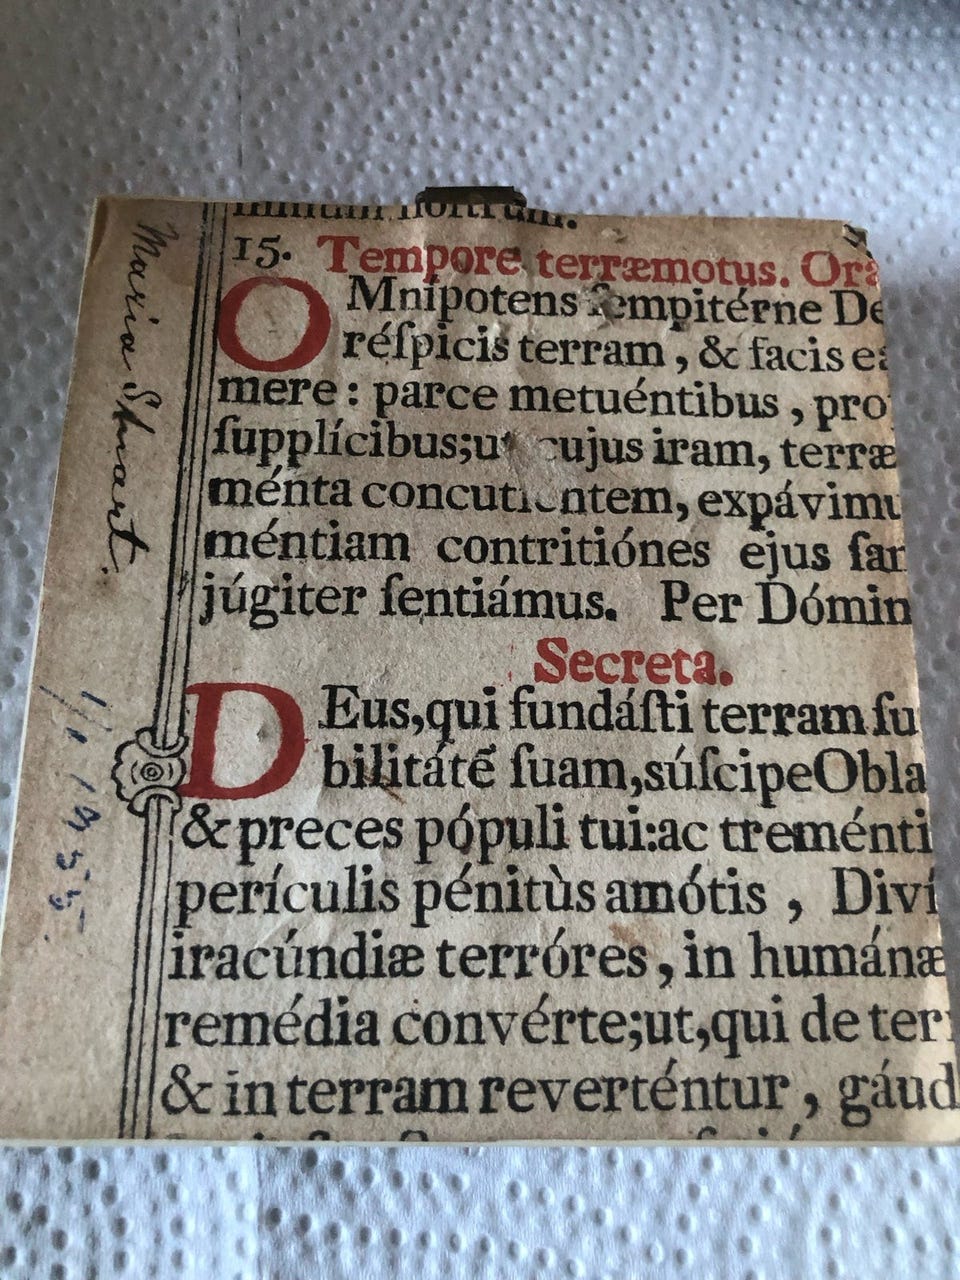 15. Tempore terræmotus. Ora
OMnipotens ſempitérne De
réſpicis terram, & facis ea
mere: parce metuéntibus, pro
ſupplícibus; ut cujus iram, terræ
ménta concutientem, expávimu
méntiam contritiónes ejus ſan
júgiter ſentiámus. Per Dómin
Secreta.
DEus, qui fundáſti terram ſu
bilitátē ſuam, súſcipe Obla
& preces pópuli tui: ac treménti
perículis pénitùs amótis, Diví
iracúndiæ terróres, in humánæ
remédia convérte; ut, qui de ter
& in terram reverténtur, gáud
Maria Stuart.